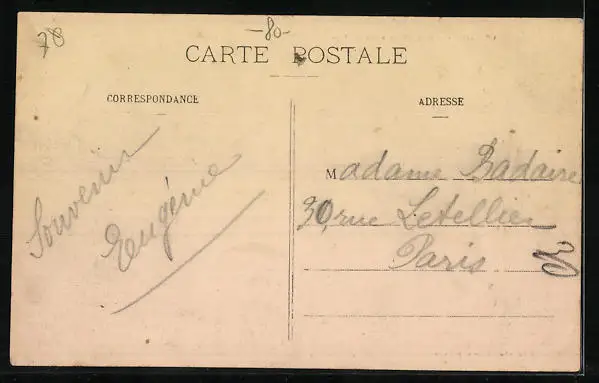 78
-80-
CARTE POSTALE
CORRESPONDANCE
ADRESSE
Souvenir
Eugénie
Madame Badaire
30, rue Letellier
Paris